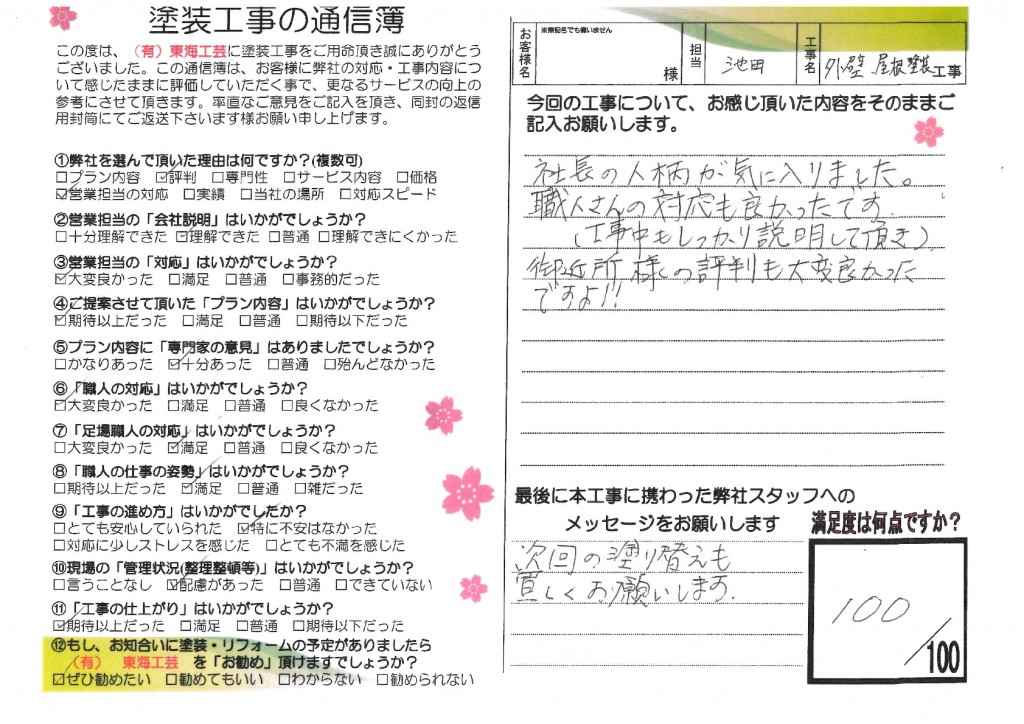 塗装工事の通信簿
この度は、（有）東海工芸に塗装工事をご用命頂き誠にありがとう
ございました。この通信簿は、お客様に弊社の対応・工事内容につ
いて感じたままに評価していただく事で、更なるサービスの向上の
参考にさせて頂きます。率直なご意見をご記入を頂き、同封の返信
用封筒にてご返送下さいます様お願い申し上げます。
①弊社を選んで頂いた理由は何ですか？(複数可)
□プラン内容 ☑評判 □専門性 □サービス内容 □価格
☑営業担当の対応 □実績 □当社の場所 □対応スピード
②営業担当の「会社説明」はいかがでしょうか？
□十分理解できた ☑理解できた □普通 □理解できにくかった
③営業担当の「対応」はいかがでしょうか？
☑大変良かった □満足 □普通 □事務的だった
④ご提案させて頂いた「プラン内容」はいかがでしょうか？
☑期待以上だった □満足 □普通 □期待以下だった
⑤プラン内容に「専門家の意見」はありましたでしょうか？
□かなりあった ☑十分あった □普通 □殆んどなかった
⑥「職人の対応」はいかがでしょうか？
☑大変良かった □満足 □普通 □良くなかった
⑦「足場職人の対応」はいかがでしょうか？
□大変良かった ☑満足 □普通 □良くなかった
⑧「職人の仕事の姿勢」はいかがでしょうか？
□期待以上だった ☑満足 □普通 □雑だった
⑨「工事の進め方」はいかがでしたか？
□とても安心していられた ☑特に不安はなかった
□対応に少しストレスを感じた □とても不満を感じた
⑩現場の「管理状況(整理整頓等)」はいかがでしょうか？
□言うことなし ☑配慮があった □普通 □できていない
⑪「工事の仕上がり」はいかがでしょうか？
☑期待以上だった □満足 □普通 □期待以下だった
⑫もし、お知合いに塗装・リフォームの予定がありましたら
（有） 東海工芸 を「お勧め」頂けますでしょうか？
☑ぜひ勧めたい □勧めてもいい □わからない □勧められない
お客様名 ※無記名でも構いません 様 担当 池田 工事名 外壁 屋根塗装工事
今回の工事について、お感じ頂いた内容をそのままご
記入お願いします。
社長の人柄が気に入りました。
職人さんの対応も良かったです.
（工事中もしっかり説明して頂き）
御近所様との評判も大変良かった
ですよ!!
最後に本工事に携わった弊社スタッフへの
メッセージをお願いします
次回の塗り替えも
宜しくお願いします.
満足度は何点ですか？
100
/100